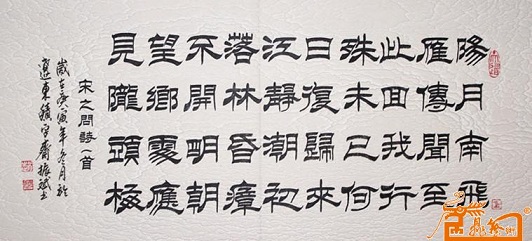 陽月南飛
雁傳聞至
此回我行
殊未已何
日復歸來
江靜潮初
落林昏瘴
不開明朝
望鄉處應
見隴頭梅
宋之問詩一首
歲在庚寅年冬月於
遼東齋振斌書